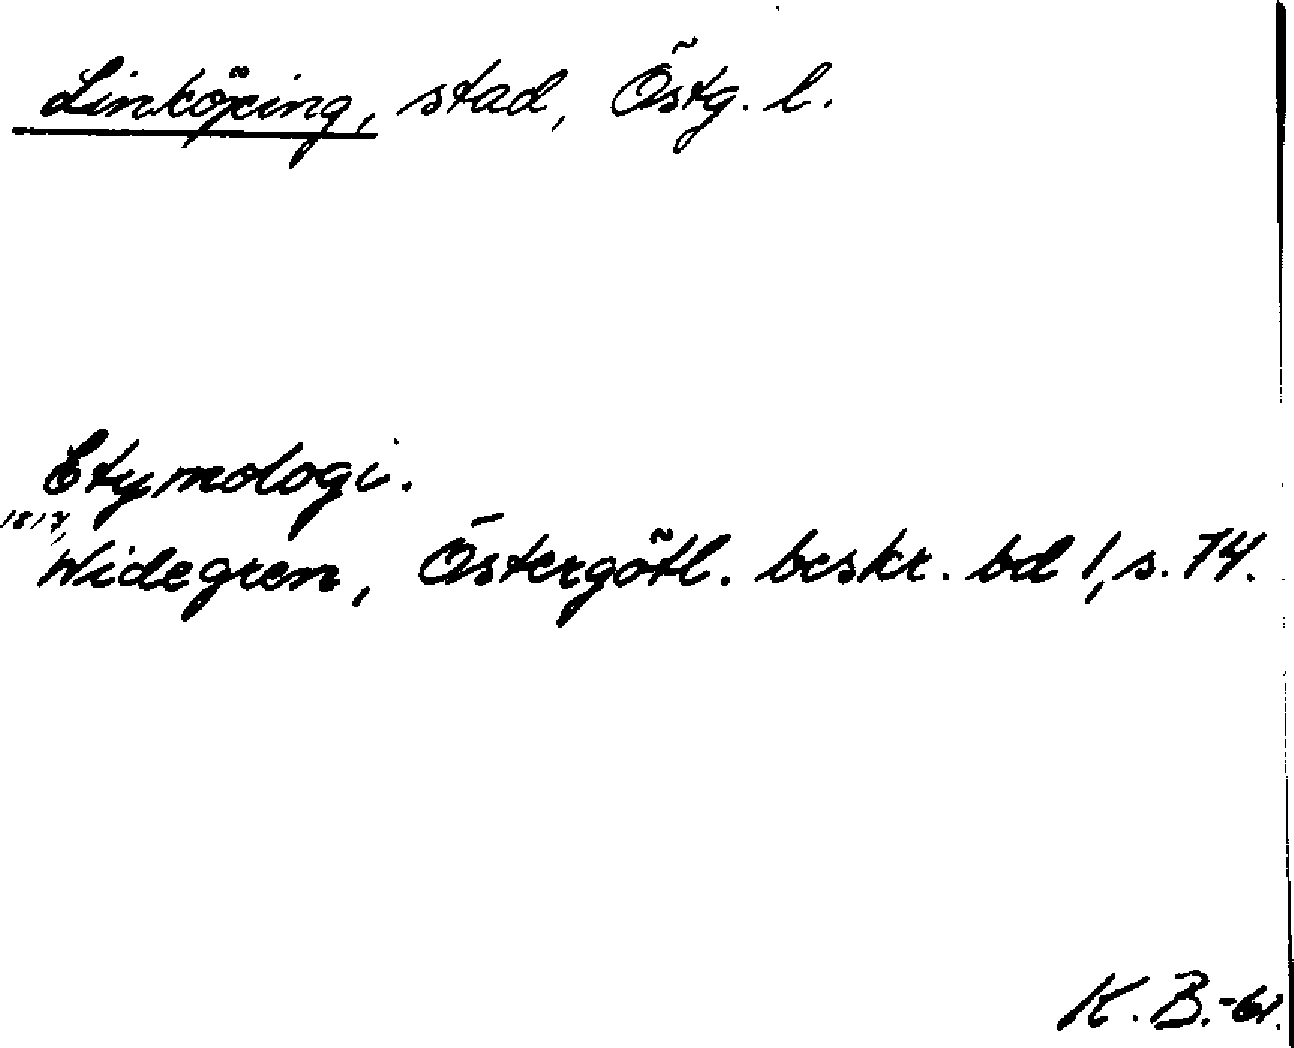 Linköping, stad, Östg. l.
Etymologi.
1817,
Widegren, Östergötl. beskr. bd 1, s. 74.
K. B. -61.